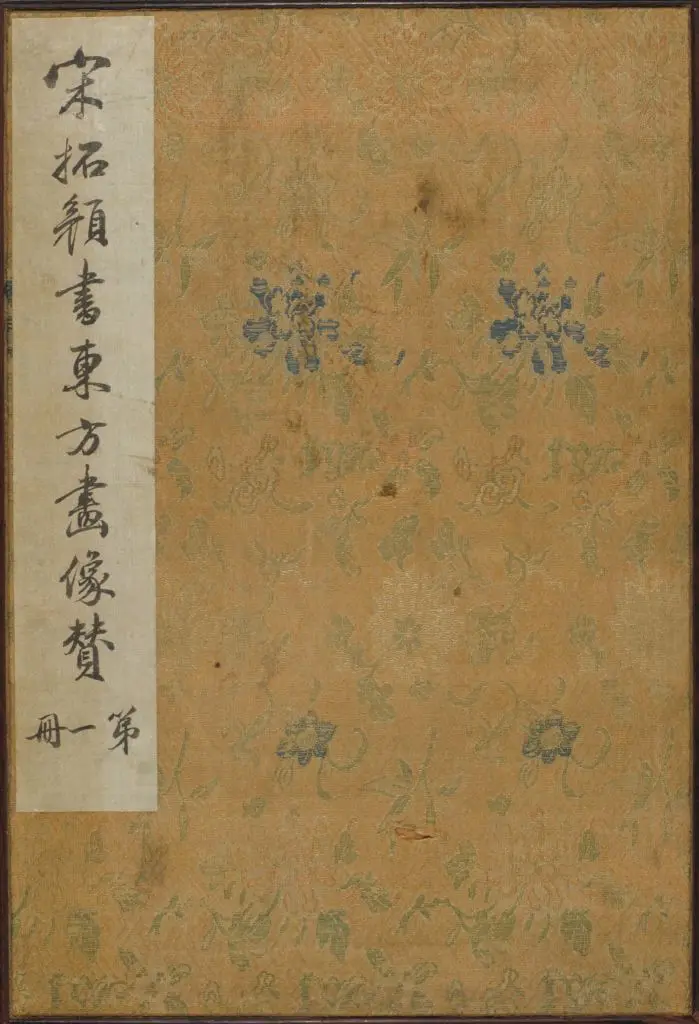 宋拓顔書東方畫像贊
第一冊